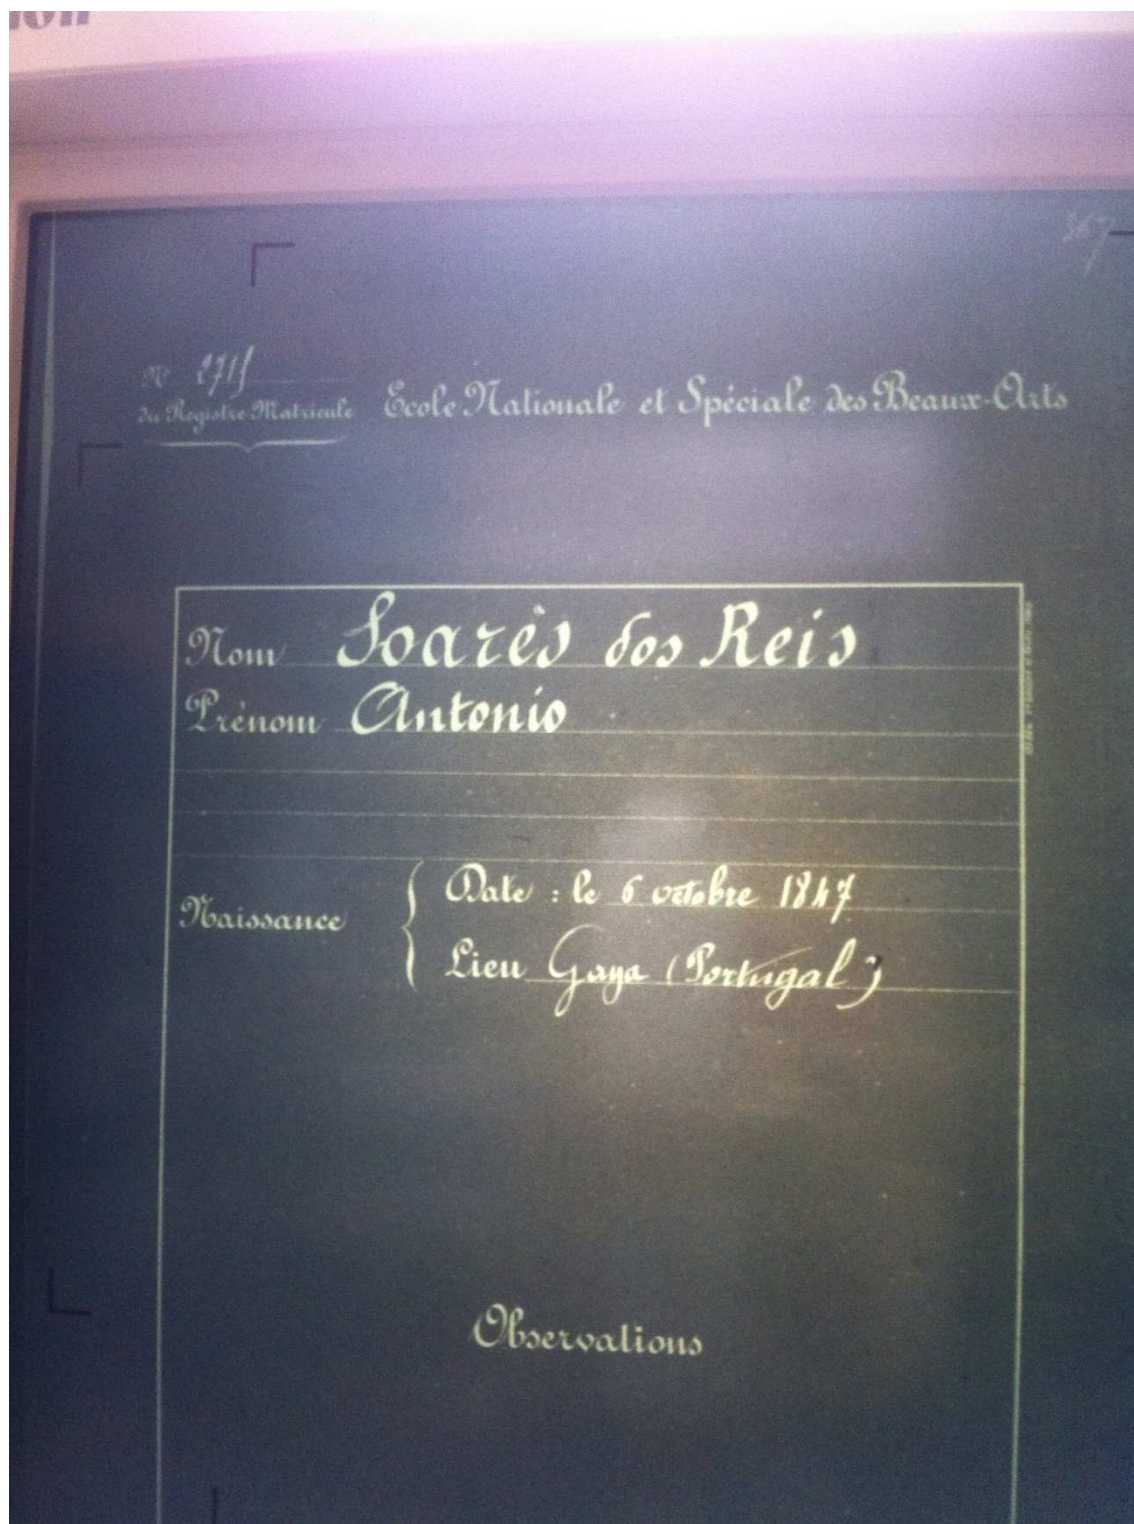 367
Nº 2715
du Registre Matricule
Ecole Nationale et Spéciale des Beaux-Arts
Nom Soarès dos Reis
Prénom Antonio
Naissance
Date : le 6 octobre 1847
Lieu Gaya (Portugal)
Observations